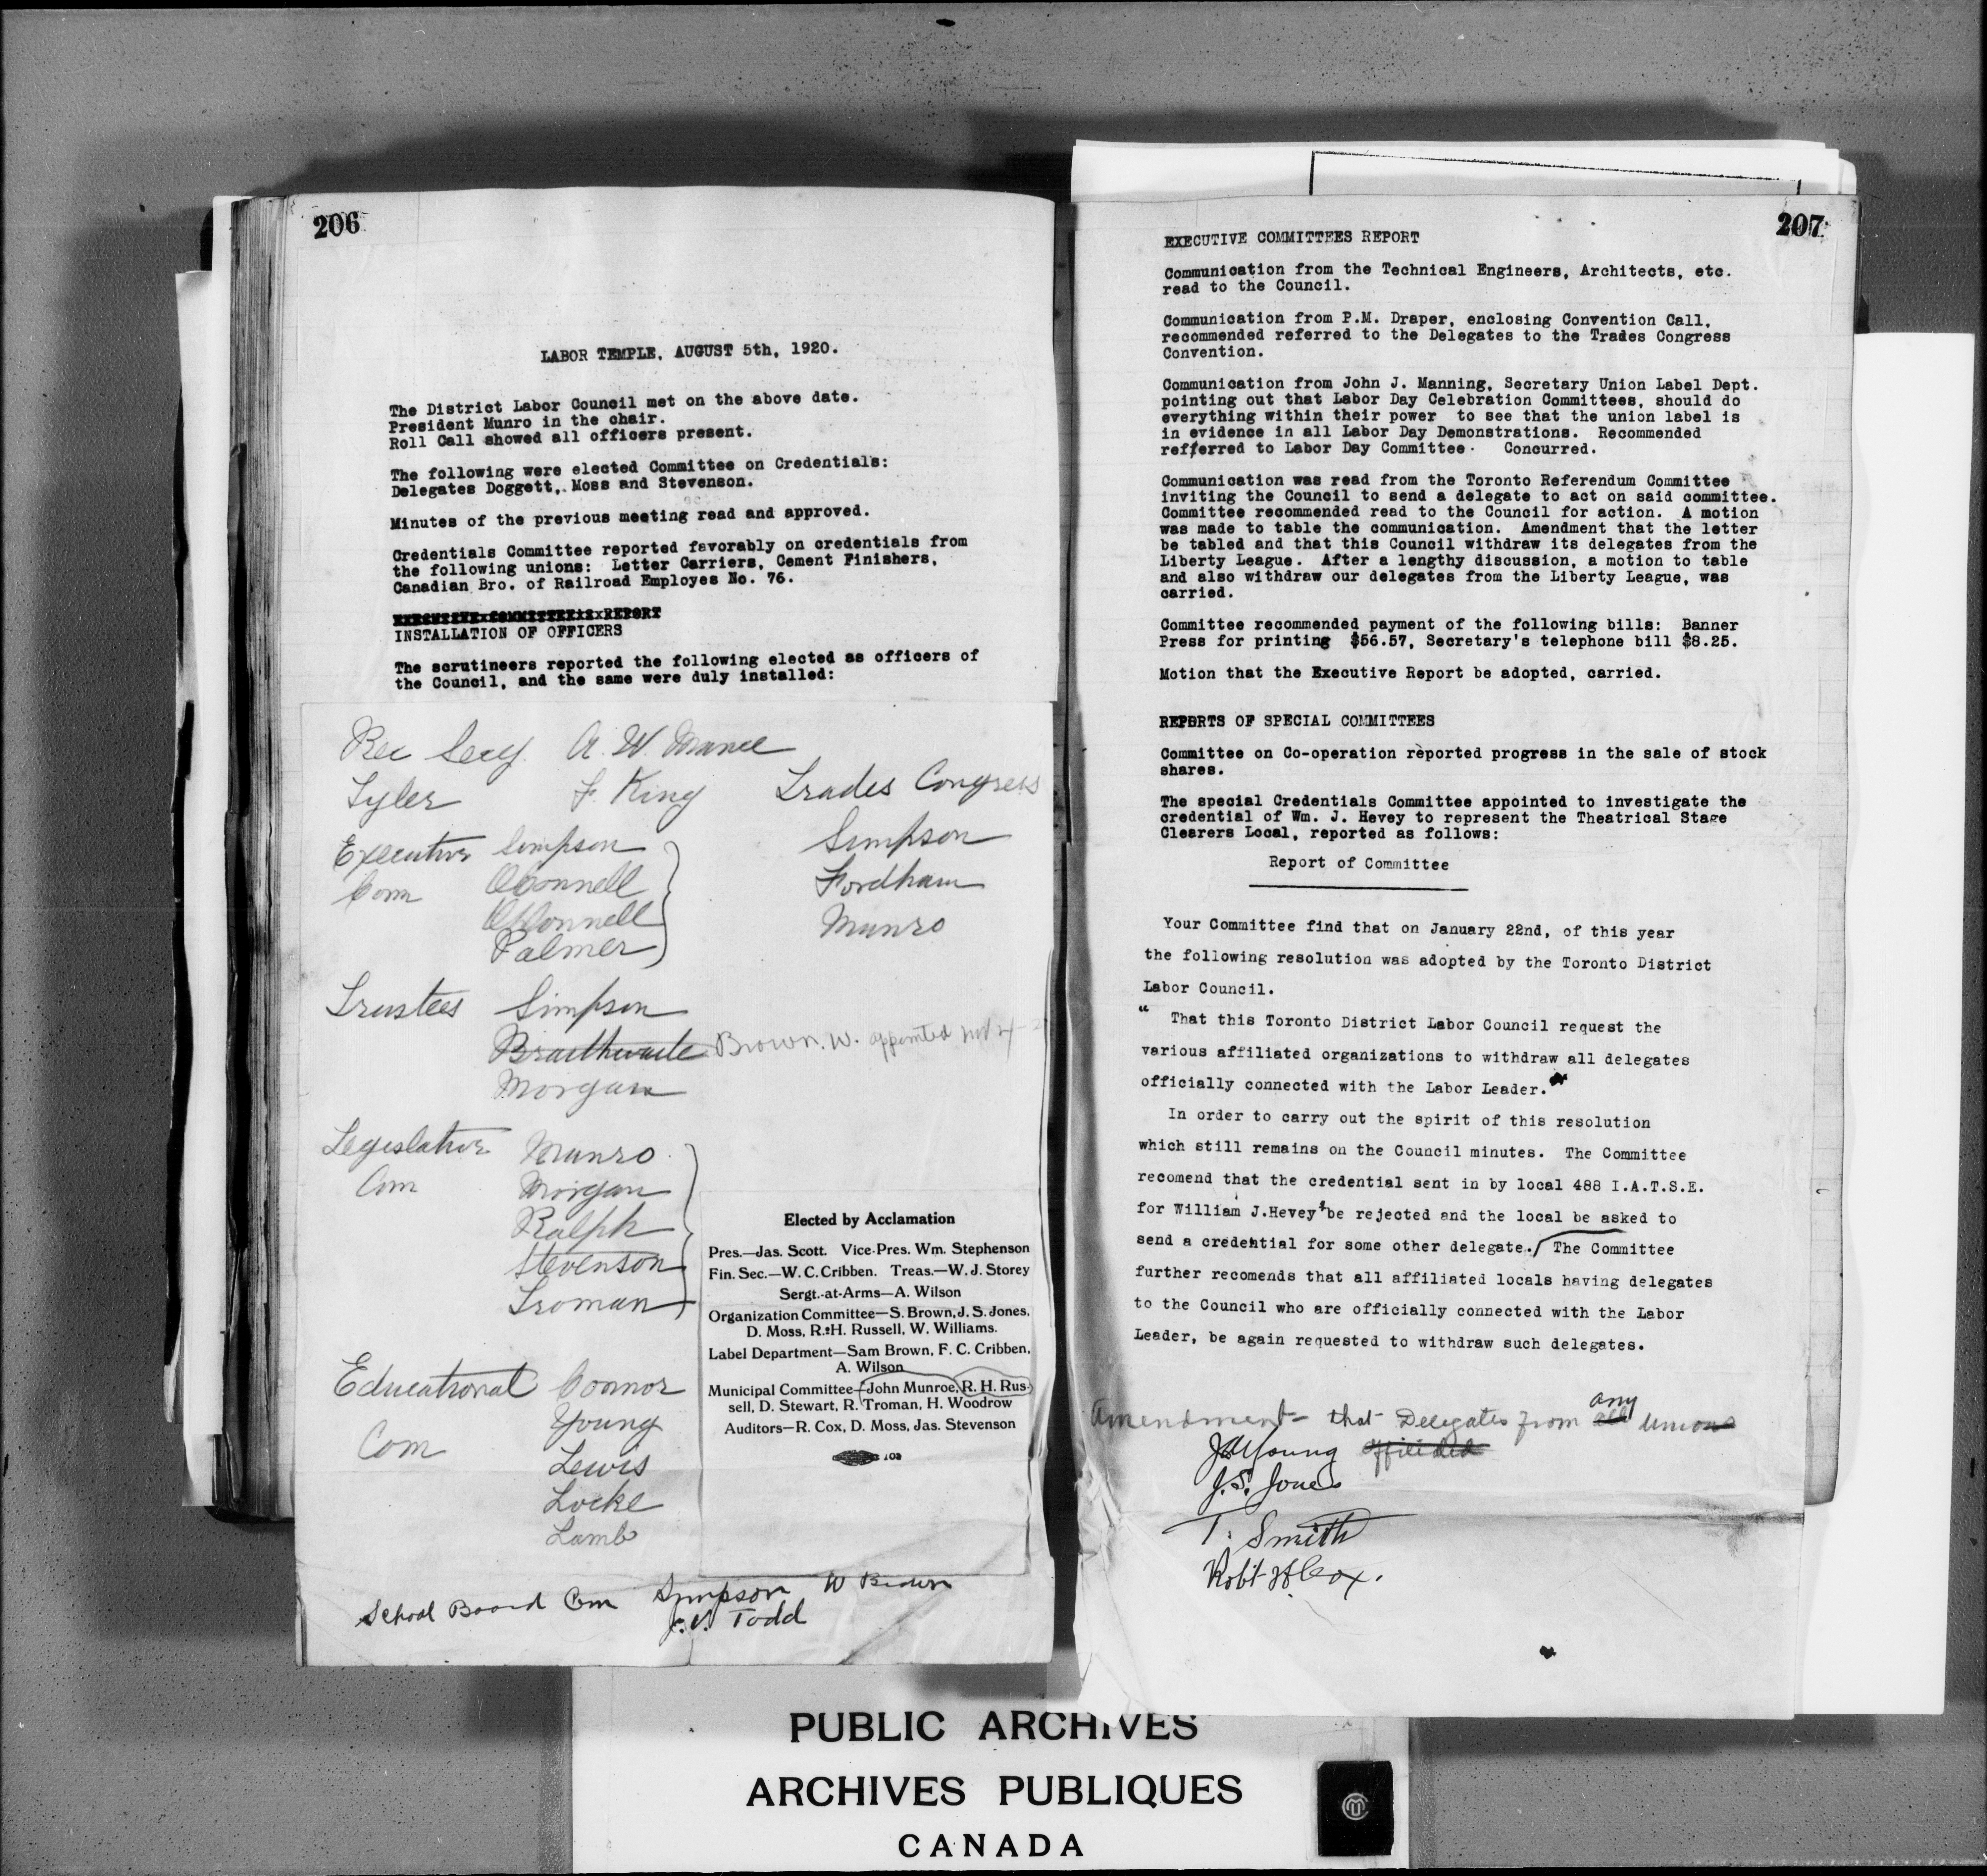 206
LABOR TEMPLE, AUGUST 5th, 1920.
The District Labor Council met on the above date.
President Munro in the chair.
Roll Call showed all officers present.
The following were elected Committee on Credentials:
Delegates Doggett, Moss and Stevenson.
Minutes of the previous meeting read and approved.
Credentials Committee reported favorably on credentials from
the following unions: Letter Carriers, Cement Finishers,
Canadian Bro. of Railroad Employes No. 76.
EXECUTIVE COMMITTEE'S REPORT
INSTALLATION OF OFFICERS
The scrutineers reported the following elected as officers of
the Council, and the same were duly installed:
Rec Secy. A. W. Mance
Tyler F. King
Executive Simpson
Com O'Connell
O'Donnell
Palmer
Trades Congress
Simpson
Fordham
Munro
Trustees Simpson
Braithwaite Brown. W. appointed
Morgan
Legislative Munro
Com Morgan
Ralph
Stevenson
Troman
Educational Connor
Young
Com Lewis
Locke
Lamb
Elected by Acclamation
Pres.—Jas. Scott. Vice-Pres. Wm. Stephenson
Fin. Sec.—W. C. Cribben. Treas.—W. J. Storey
Sergt.-at-Arms—A. Wilson
Organization Committee—S. Brown, J. S. Jones,
D. Moss, R. H. Russell, W. Williams.
Label Department—Sam Brown, F. C. Cribben,
A. Wilson
Municipal Committee—John Munroe, R. H. Rus-
sell, D. Stewart, R. Troman, H. Woodrow
Auditors—R. Cox, D. Moss, Jas. Stevenson
103
School Board Com Simpson W Brown
J. V. Todd
207
EXECUTIVE COMMITTEES REPORT
Communication from the Technical Engineers, Architects, etc.
read to the Council.
Communication from P.M. Draper, enclosing Convention Call,
recommended referred to the Delegates to the Trades Congress
Convention.
Communication from John J. Manning, Secretary Union Label Dept.
pointing out that Labor Day Celebration Committees, should do
everything within their power to see that the union label is
in evidence in all Labor Day Demonstrations. Recommended
refferred to Labor Day Committee. Concurred.
Communication was read from the Toronto Referendum Committee
inviting the Council to send a delegate to act on said committee.
Committee recommended read to the Council for action. A motion
was made to table the communication. Amendment that the letter
be tabled and that this Council withdraw its delegates from the
Liberty League. After a lengthy discussion, a motion to table
and also withdraw our delegates from the Liberty League, was
carried.
Committee recommended payment of the following bills: Banner
Press for printing $56.57, Secretary's telephone bill $8.25.
Motion that the Executive Report be adopted, carried.
REPORTS OF SPECIAL COMMITTEES
Committee on Co-operation reported progress in the sale of stock
shares.
The special Credentials Committee appointed to investigate the
credential of Wm. J. Hevey to represent the Theatrical Stage
Clearers Local, reported as follows:
Report of Committee
Your Committee find that on January 22nd, of this year
the following resolution was adopted by the Toronto District
Labor Council.
" That this Toronto District Labor Council request the
various affiliated organizations to withdraw all delegates
officially connected with the Labor Leader."
In order to carry out the spirit of this resolution
which still remains on the Council minutes. The Committee
recomend that the credential sent in by local 488 I.A.T.S.E.
for William J.Hevey be rejected and the local be asked to
send a credential for some other delegate. The Committee
further recomends that all affiliated locals having delegates
to the Council who are officially connected with the Labor
Leader, be again requested to withdraw such delegates.
any
Amendment - that Delegates from all unions
J A Young
J. S. Jones
T. Smith
Robt H Cox.
PUBLIC ARCHIVES
ARCHIVES PUBLIQUES
CANADA